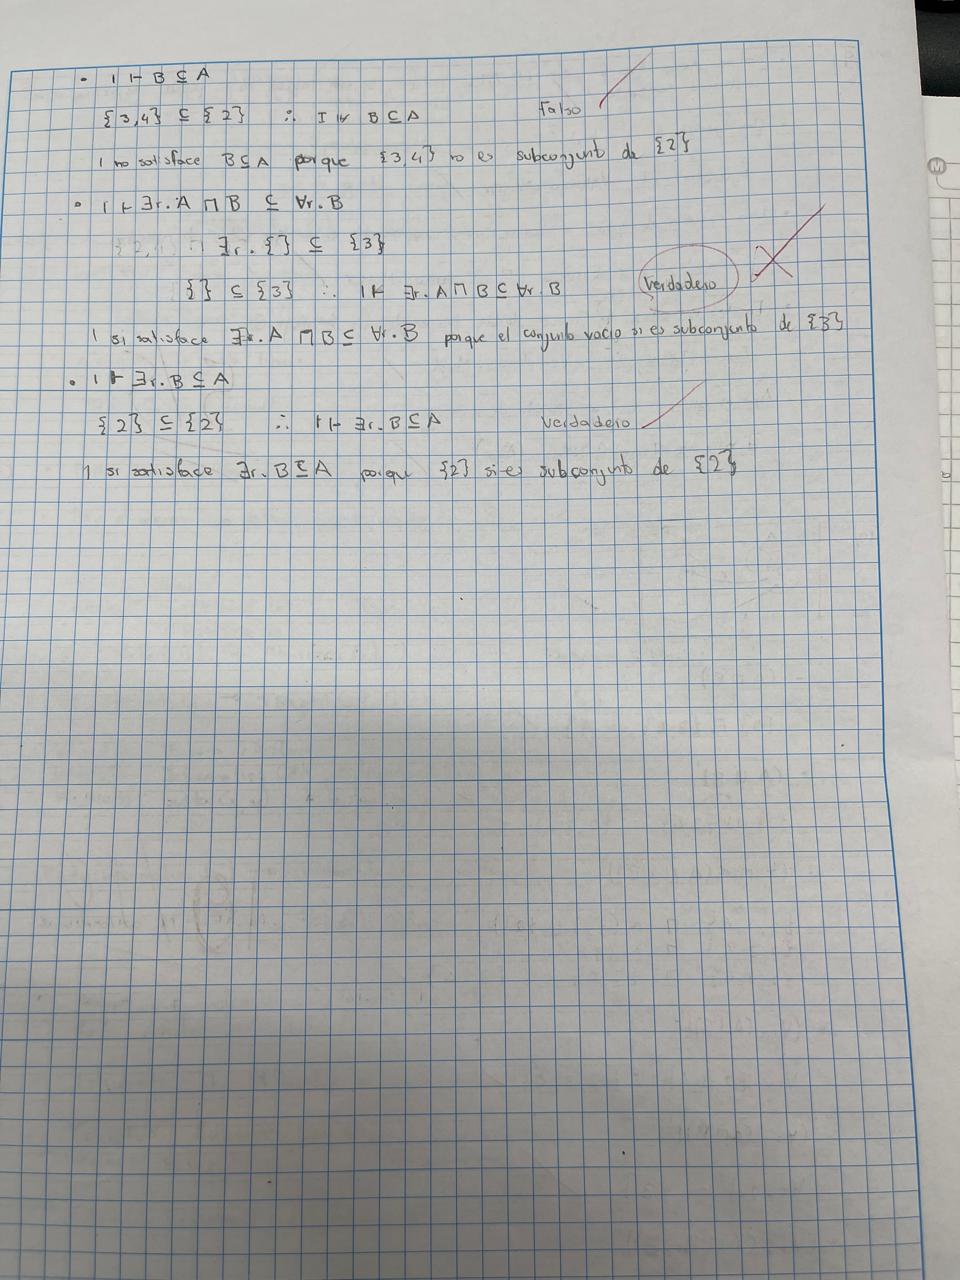 • I ⊩ B ⊆ A
{3,4} ⊆ {2} ∴ I ⊮ B ⊆ A Falso
I no satisface B ⊆ A porque {3,4} no es subconjunt de {2}
• I ⊢ ∃r.A ⊓ B ⊆ ∀r.B
∃r.{} ⊆ {3}
{} ⊆ {3} ∴ I ⊩ ∃r.A ⊓ B ⊆ ∀r.B Verdadero
I si satisface ∃r.A ⊓ B ⊆ ∀r.B porque el conjunto vacio si es subconjunto de {3}
• I ⊩ ∃r.B ⊆ A
{2} ⊆ {2} ∴ I ⊩ ∃r.B ⊆ A Verdadero
I si satisface ∃r.B ⊆ A porque {2} si es subconjunto de {2}
M